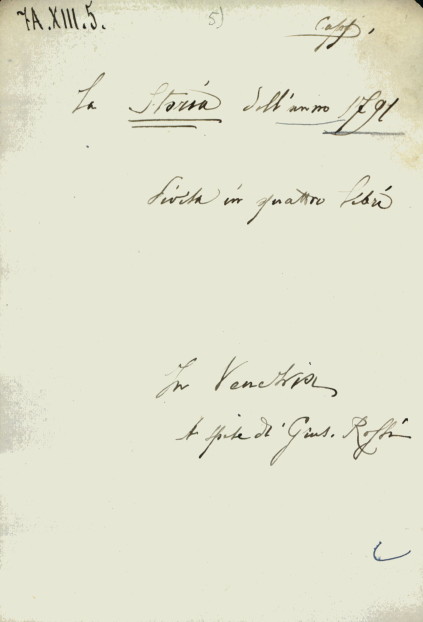 7A.XIII.5.
5)
La Storia dell'anno 1791
divisa in quattro libri
In Venezia
A spese di Gius. Rossi